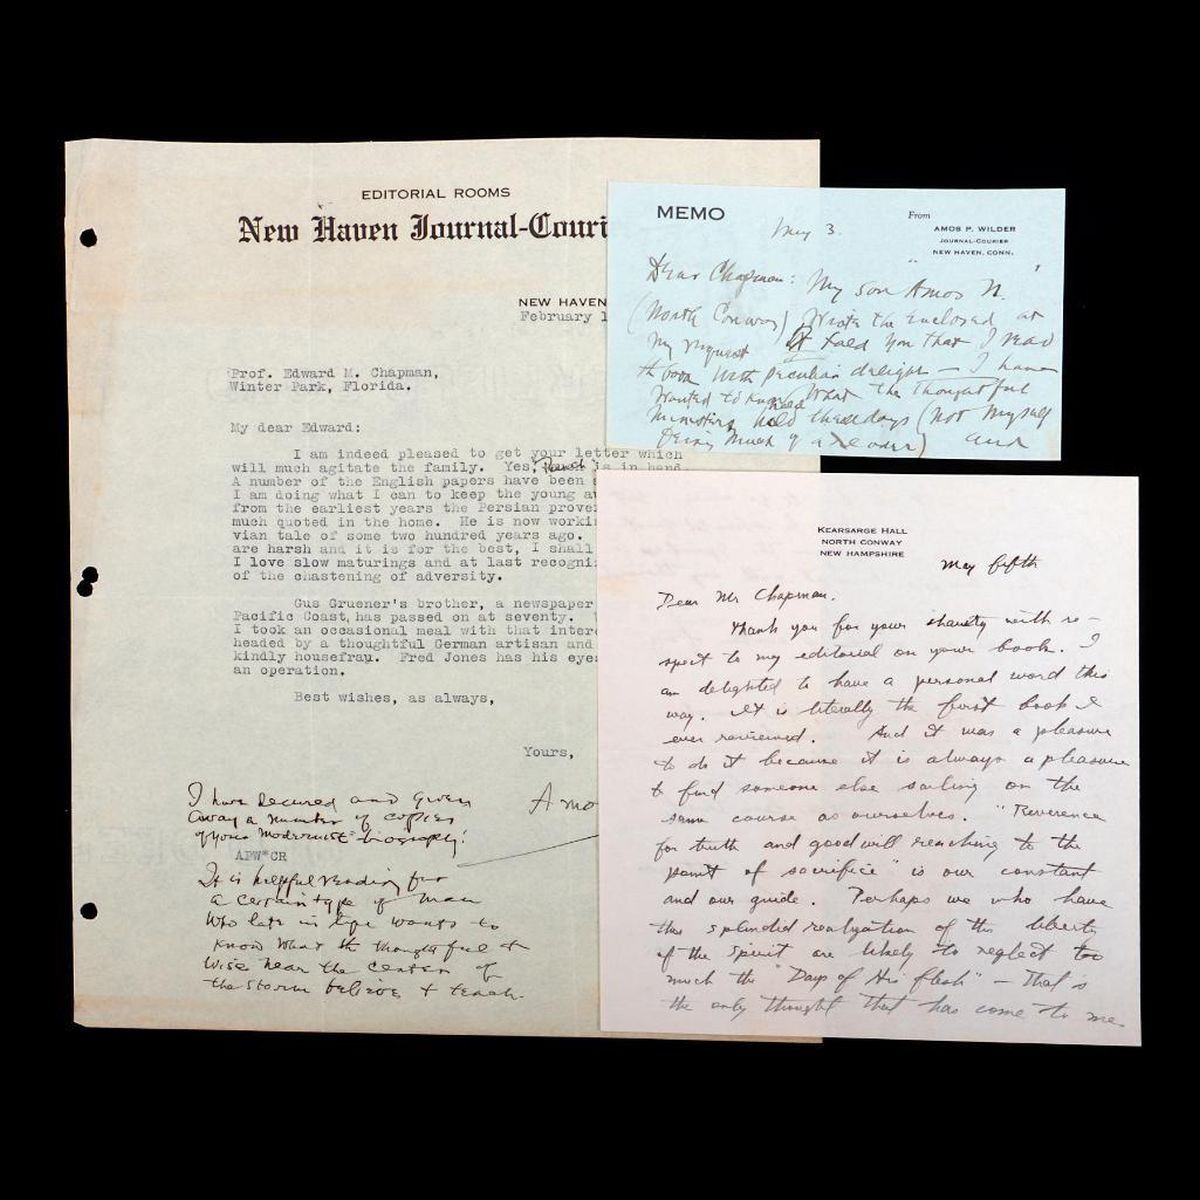 EDITORIAL ROOMS
New Haven Journal-Couri
NEW HAVEN
February 1
Prof. Edward M. Chapman,
Winter Park, Florida.
My dear Edward:
I am indeed pleased to get your letter which
will much agitate the family. Yes, "Punch" is in hand.
A number of the English papers have been
I am doing what I can to keep the young a
from the earliest years the Persian prove
much quoted in the home. He is now worki
vian tale of some two hundred years ago.
are harsh and it is for the best, I shall
I love slow maturings and at last recogni
of the chastening of adversity.
Gus Gruener's brother, a newspaper
Pacific Coast, has passed on at seventy.
I took an occasional meal with that inter
headed by a thoughtful German artisan and
kindly housefrau. Fred Jones has his eye
an operation.
Best wishes, as always,
Yours,
Amo
I have secured and given
away a number of copies
of your "Modernist" biography!
APW*CR
It is helpful reading for
a certain type of man
who late in life wants to
know what the thoughtful &
wise near the center of
the storm believe & teach.
MEMO
From
AMOS P. WILDER
JOURNAL-COURIER
NEW HAVEN, CONN.
May 3.
Dear Chapman: My son "Amos N."
(North Conway) wrote the enclosed at
my request. I told you that I read
the book with peculiar delight — I have
wanted to know what the thoughtful
ministers held these days (not myself
being much of a reader) and
KEARSARGE HALL
NORTH CONWAY
NEW HAMPSHIRE
May fifth
Dear Mr Chapman.
Thank you for your charity with re-
spect to my editorial on your book. I
am delighted to have a personal word this
way. It is literally the first book I
ever reviewed. And it was a pleasure
to do it because it is always a pleasure
to find someone else sailing on the
same course as ourselves. "Reverence
for truth and good will reaching to the
point of sacrifice" is our constant
and our guide. Perhaps we who have
this splendid realization of the liberty
of the Spirit are likely to neglect too
much the "Days of His flesh" — That is
the only thought that has come to me